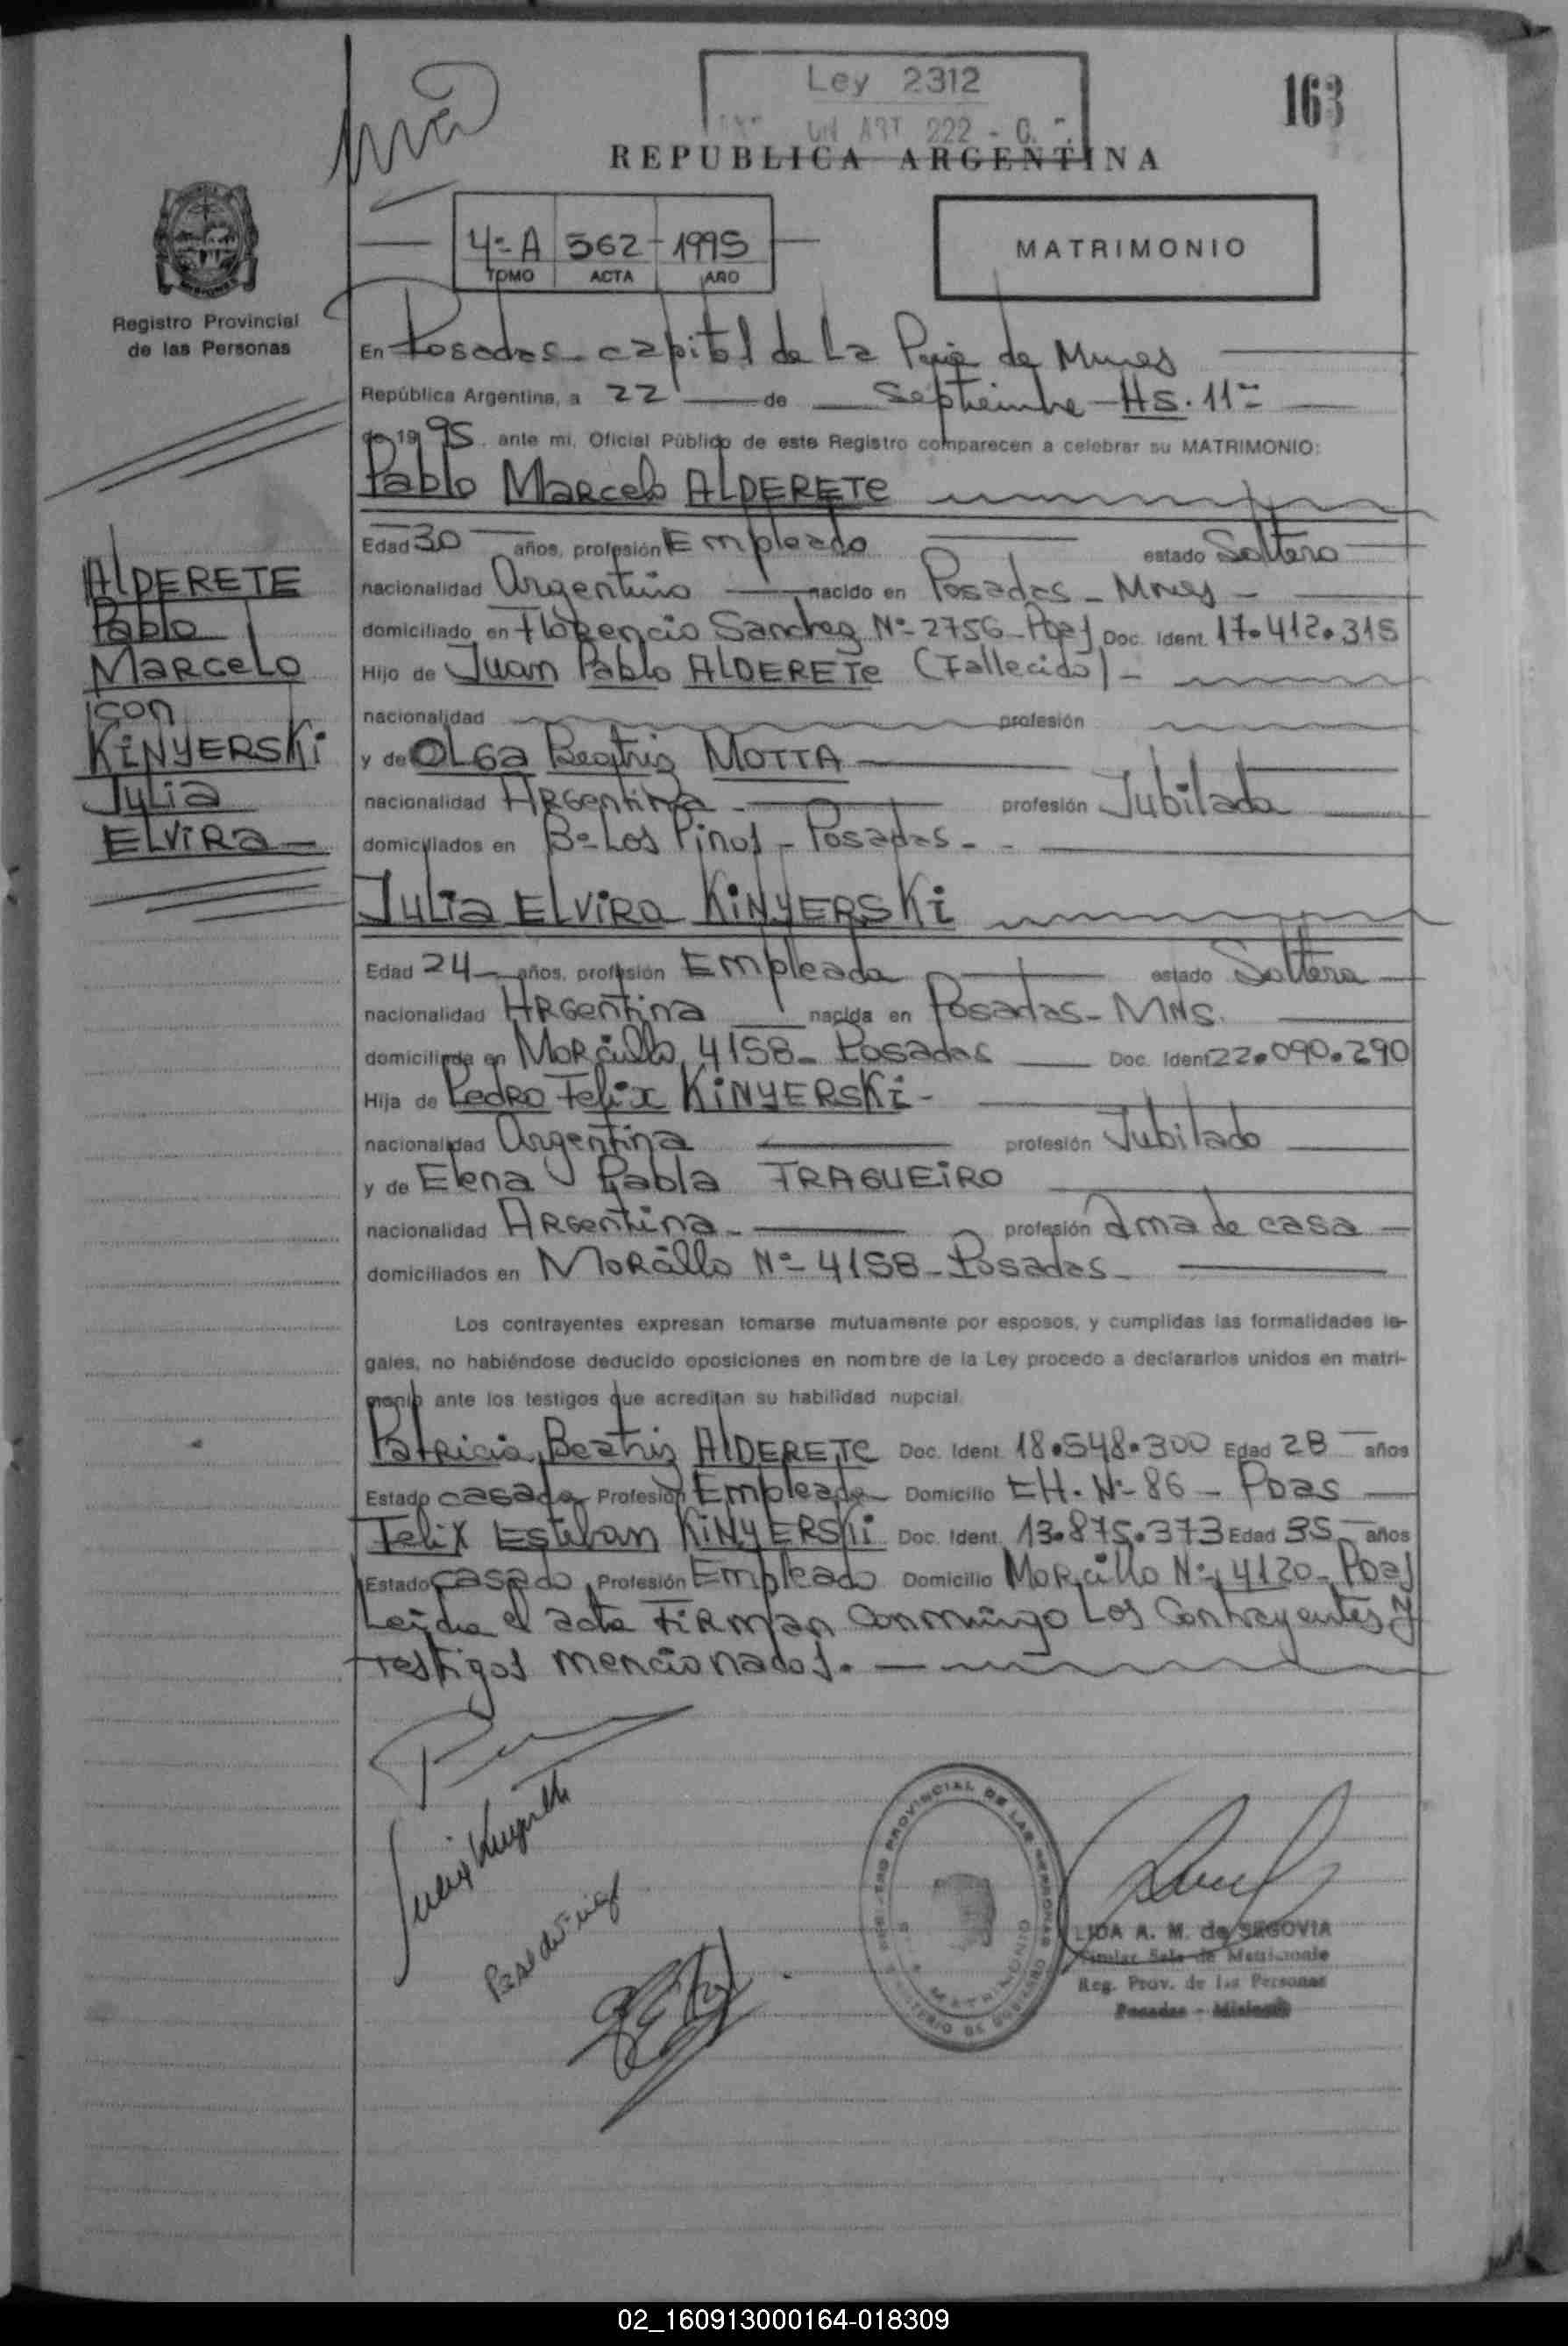 Ley 2312
ART 222
163
REPUBLICA ARGENTINA
4º A 562 - 1995
TOMO ACTA AÑO
MATRIMONIO
Registro Provincial
de las Personas
En Posadas - capital de La Pcia de Mnes
República Argentina, a 22 de Septiembre - Hs. 11
de 1995, ante mi, Oficial Público de este Registro comparecen a celebrar su MATRIMONIO:
Pablo Marcelo ALDERETE
Edad 30 años, profesión Empleado estado Soltero
nacionalidad Argentino nacido en Posadas - Mnes -
domiciliado en Florencio Sanchez Nº 2756 - Pdas Doc. Ident. 17.412.315
Hijo de Juan Pablo ALDERETE (Fallecido) -
nacionalidad profesión
y de OLGa Beatriz MOTTA
nacionalidad ARGentina - profesión Jubilada
domiciliados en Bº Los Pinos - Posadas - -
ALDERETE
Pablo
MARCELO
con
KiNYERSKi
JULia
ELViRa
JULia ELViRa KiNYERSKi
Edad 24 años, profesión Empleada estado Soltera
nacionalidad ARGentina nacida en Posadas - MNS.
domiciliada en MORcillo 4158 - Posadas Doc. Ident 22.090.290
Hija de PedRo Felix KiNYERSKi -
nacionalidad Argentina profesión Jubilado
y de Elena Pabla FRAGUEiRO
nacionalidad ARGentina - profesión ama de casa
domiciliados en MORcillo Nº 4158 - Posadas -
Los contrayentes expresan tomarse mutuamente por esposos, y cumplidas las formalidades le-
gales, no habiéndose deducido oposiciones en nombre de la Ley procedo a declararlos unidos en matri-
monio ante los testigos que acreditan su habilidad nupcial.
Patricia Beatriz ALDERETE Doc. Ident. 18.548.300 Edad 28 años
Estado casada Profesión Empleada Domicilio CH. Nº 86 - Pdas
Felix Esteban KiNYERSKi Doc. Ident. 13.875.373 Edad 35 años
Estado casado Profesión Empleado Domicilio MORcillo Nº 4120 - Pdas
Leida el acta FiRman conmigo Los Contrayentes y
testigos mencionados. -
REGISTRO PROVINCIAL DE LAS PERSONAS
MATRIMONIO
MINISTERIO DE GOBIERNO
LIDA A. M. de SEGOVIA
Titular Sala de Matrimonio
Reg. Prov. de las Personas
Posadas - Misiones
02_160913000164-018309